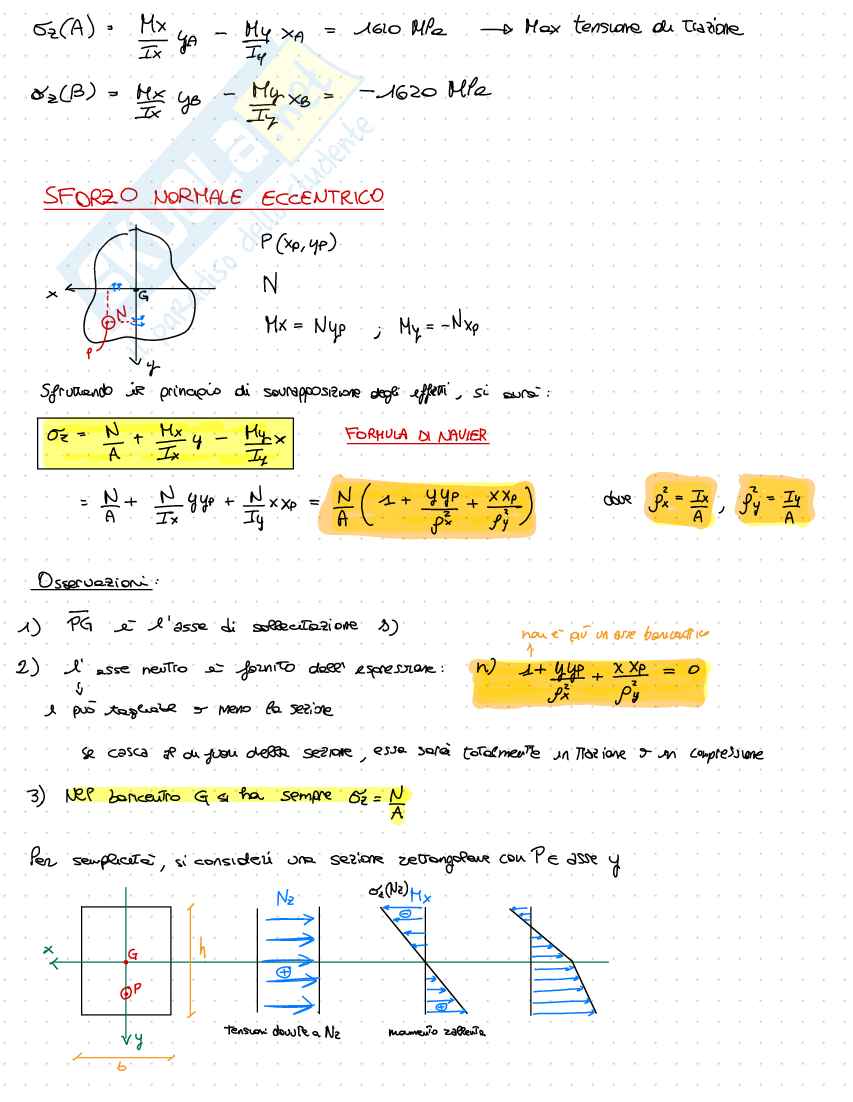 σz(A) = Mx/Ix yA - My/Iy xA = 1620 MPa → Max tensione di Trazione
σz(B) = Mx/Ix yB - My/Iy xB = -1620 MPa
SKUOLA.net
il paradiso dello studente
SFORZO NORMALE ECCENTRICO
P(xp, yp)
N
Mx = Nyp ; My = -Nxp
x
G
N
P
y
Sfruttando il principio di sovrapposizione degli effetti, si avrà:
σz = N/A + Mx/Ix y - My/Iy x
FORMULA DI NAVIER
= N/A + N/Ix yyp + N/Iy xxp = N/A (1 + yyp/ρx² + xxp/ρy²) dove ρx² = Ix/A, ρy² = Iy/A
Osservazioni:
1) PG è l'asse di sollecitazione s)
non è più un asse baricentrico
2) l'asse neutro è fornito dall'espressione: n) 1 + yyp/ρx² + xxp/ρy² = 0
↓
e può tagliare o meno la sezione
se casca al di fuori della sezione, essa sarà totalmente in trazione o in compressione
3) Nel baricentro G si ha sempre σz = N/A
Per semplicità, si consideri una sezione rettangolare con P ∈ asse y
x
G
P
y
h
b
Nz
⊕
tensioni dovute a Nz
σz(Nz) Mx
⊖
⊕
momento